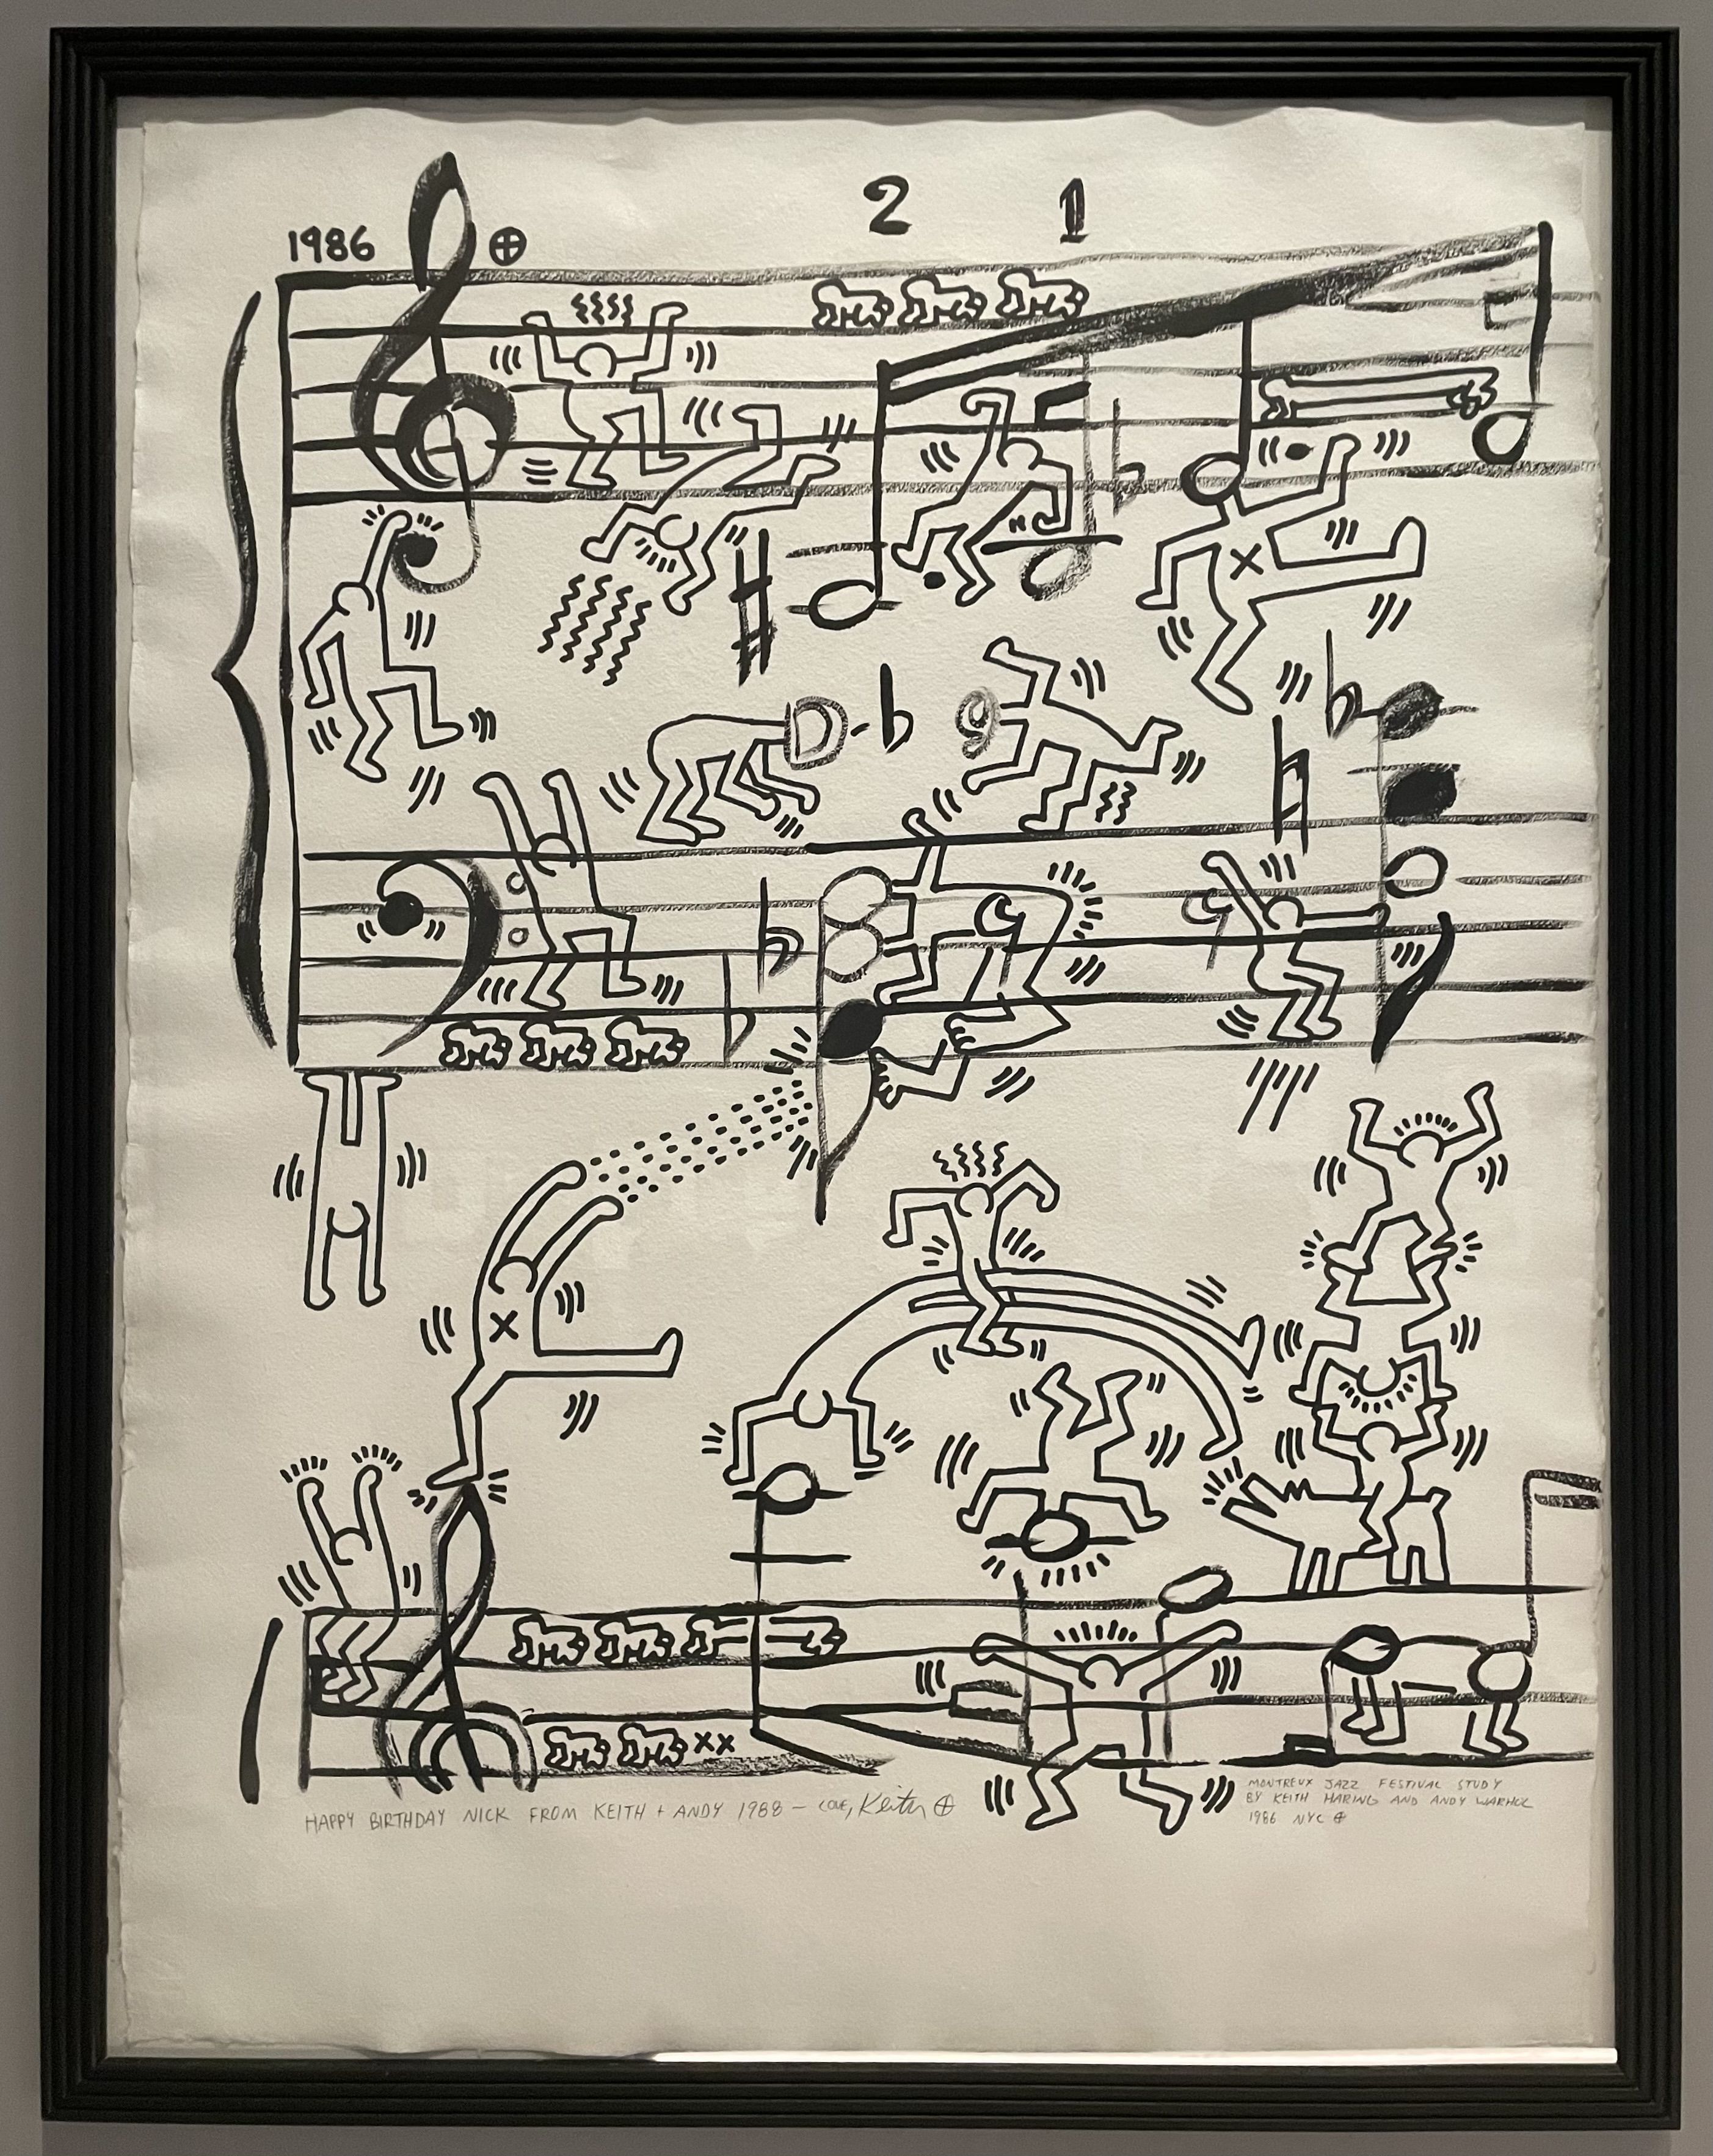 2 1
1986
HAPPY BIRTHDAY NICK FROM KEITH + ANDY 1988 – LOVE, Keith
MONTREUX JAZZ FESTIVAL STUDY
BY KEITH HARING AND ANDY WARHOL
1986 NYC